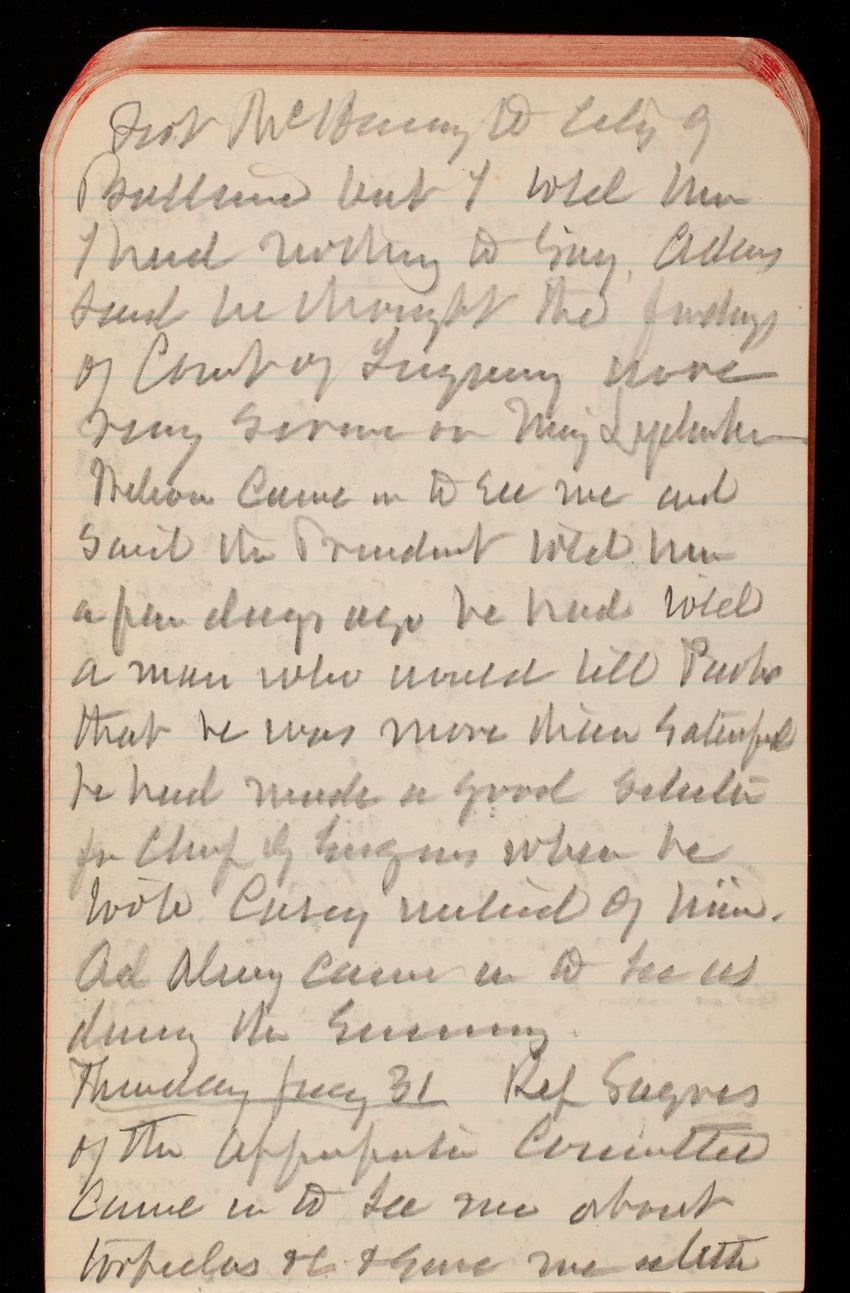 Fort McHenry to City of
Baltimore but I told him
I had nothing to say. Adams
said he thought the findings
of Court of Inquiry were
very severe on Maj
Nelson came in to see me and
said the President told him
a few days ago he had told
a man who would tell
that he was more than satisfied
he had made a good selection
for Chief of Engrs when he
took Casey instead of him.
Ad Alvey came in to see us
during the Evening.
Thursday Jany 31 Rep Sayres
of the Appropriation Committee
came in to see me about
torpedoes &c & gave me a letter